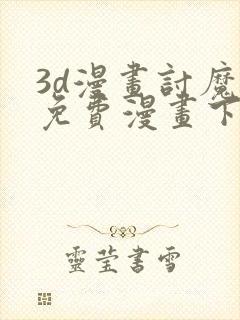 3d漫畫討魔
免費漫畫下
靈瑩書雪